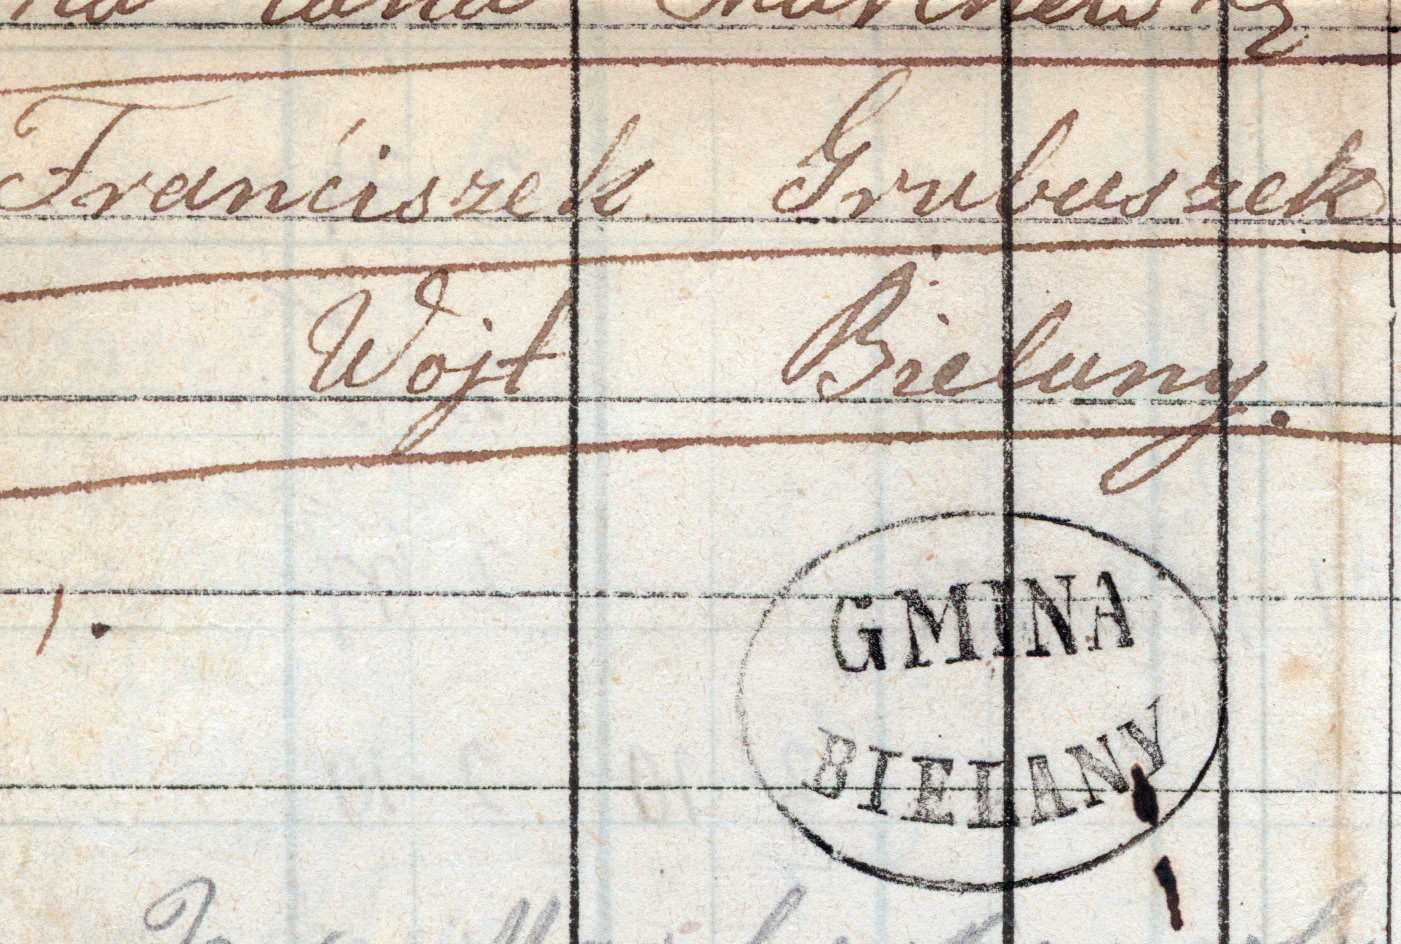 Franćiszek Grubuszek
Wojt Bielany.
1.
GMINA
BIELANY